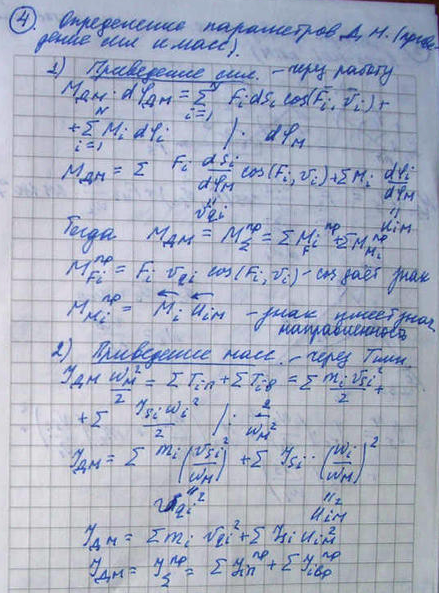 ④. Определение параметров Д.М. (приве-
дение сил и масс).
1) Приведение сил. – через работу
M_дм · dφ_дм = Σ_{i=1}^{n} F_i dS_i cos(F̄_i, v̄_i) +
+ Σ_{i=1}^{n} M_i dφ_i | : dφ_м
M_дм = Σ F_i dS_i/dφ_м cos(F_i, v_i) + Σ M_i dφ_i/dφ_м
" v_qi " u_iм
Тогда M_дм = M_Σ^пр = Σ M_{F_i}^пр + Σ M_{M_i}^пр
M_{F_i}^пр = F_i v_qi cos(F_i, v_i) – cos даёт знак
M_{M_i}^пр = M_i u_iм – знак имеет знач.
направленность
2) Приведение масс. – через Tкин
J_дм ω_м²/2 = Σ T_iп + Σ T_iв = Σ m_i v_si²/2 +
+ Σ J_si ω_i²/2 | · 2/ω_м²
J_дм = Σ m_i (v_si/ω_м)² + Σ J_si · (ω_i/ω_м)²
" v_qi² " u²_iм
J_дм = Σ m_i v_qi² + Σ J_si u_iм²
J_дм = J_Σ^пр = Σ J_iп^пр + Σ J_iвр^пр